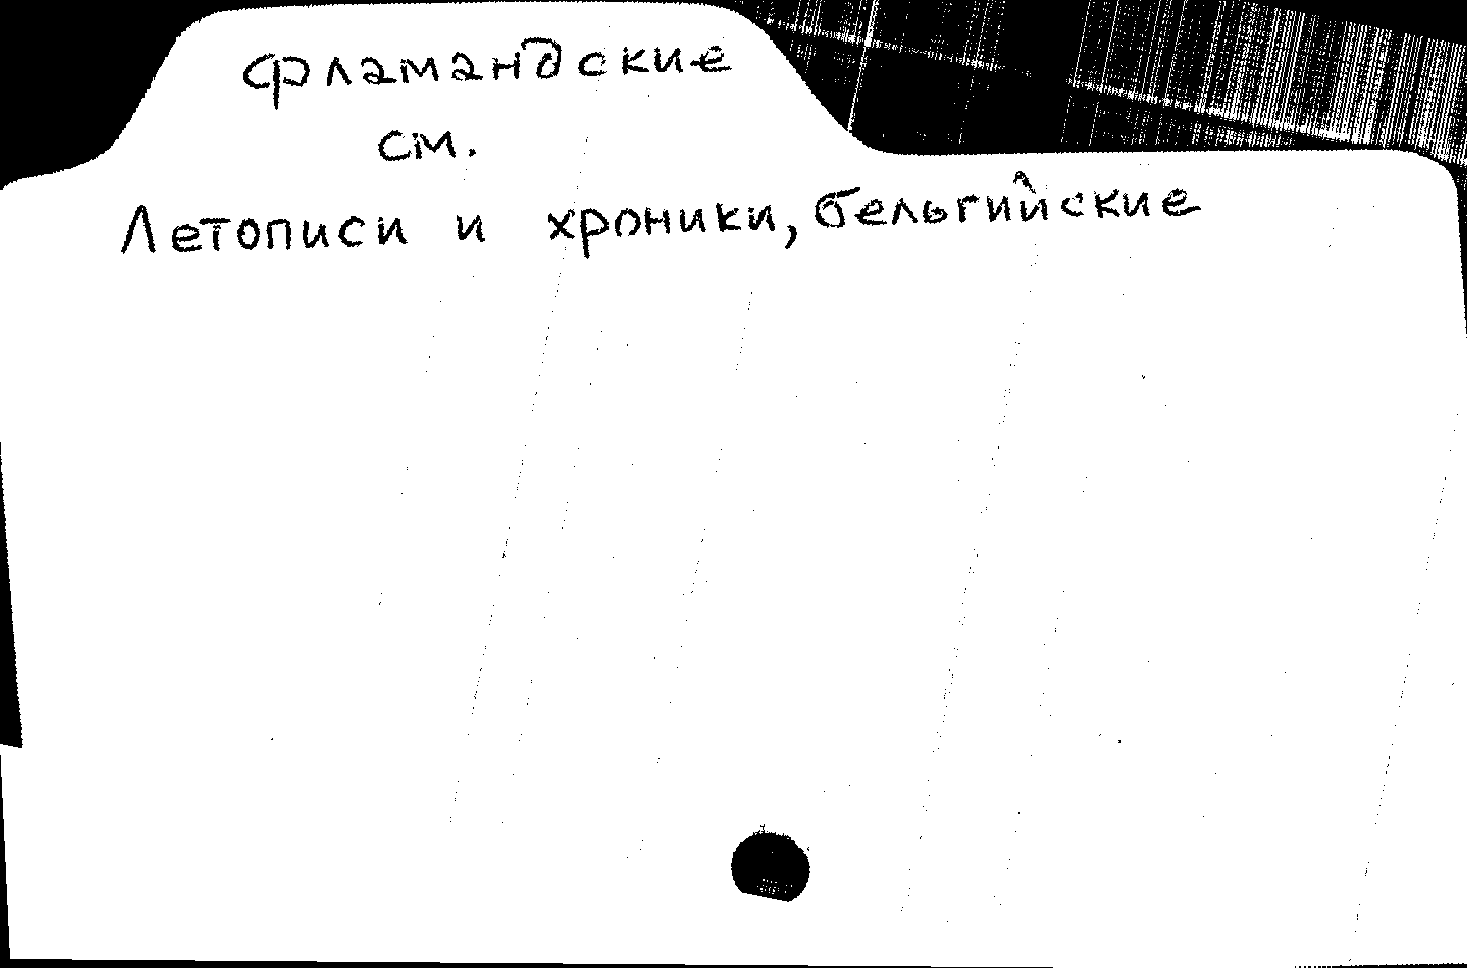 фламандские
см.
Летописи и хроники, бельгийские